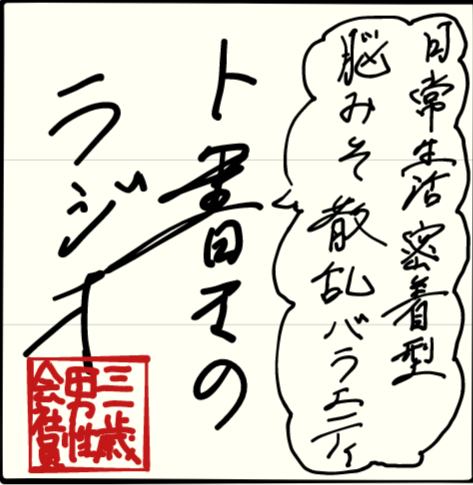 日常生活密着型
脳みそ散乱バラエティ
ト書王の
ラジオ
三歳
男性
会社員